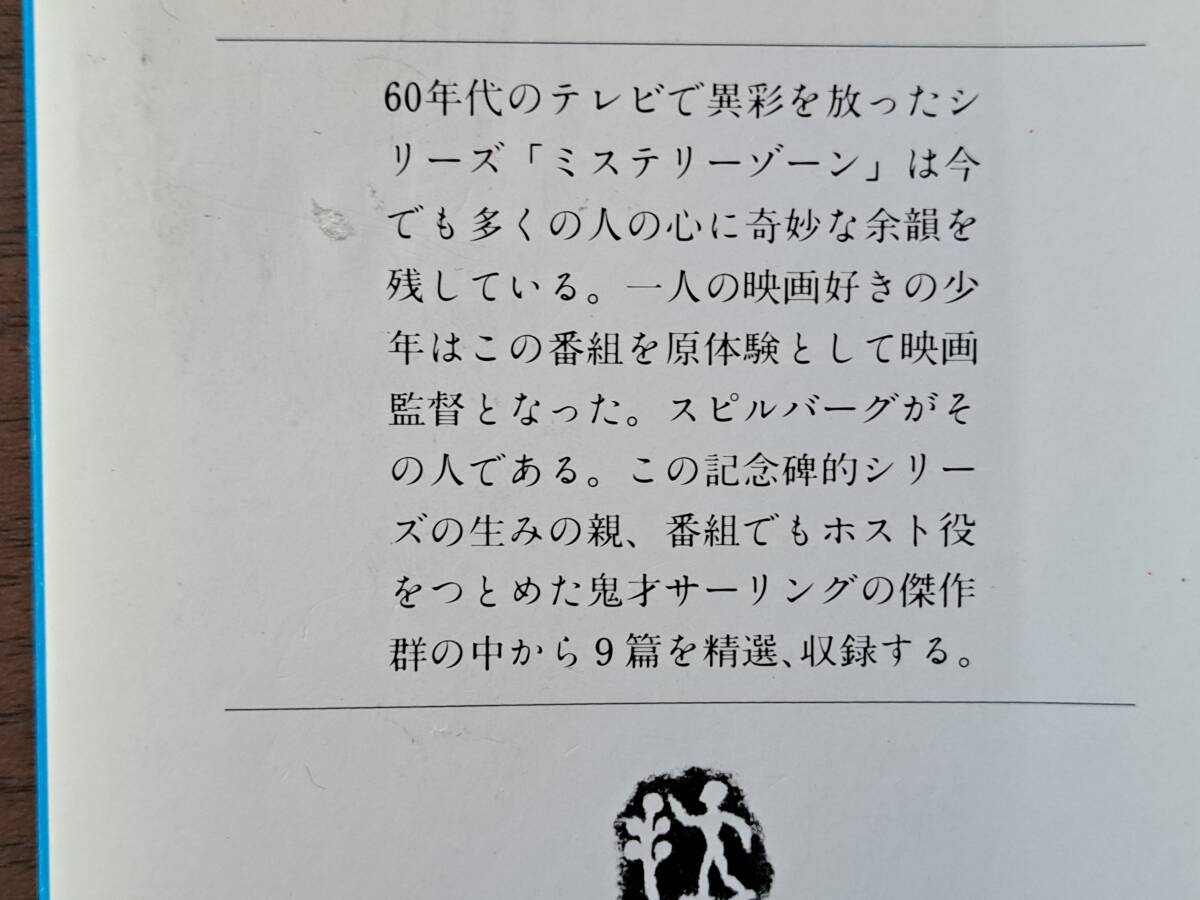 60年代のテレビで異彩を放ったシ
リーズ「ミステリーゾーン」は今
でも多くの人の心に奇妙な余韻を
残している。一人の映画好きの少
年はこの番組を原体験として映画
監督となった。スピルバーグがそ
の人である。この記念碑的シリー
ズの生みの親、番組でもホスト役
をつとめた鬼才サーリングの傑作
群の中から9篇を精選、収録する。